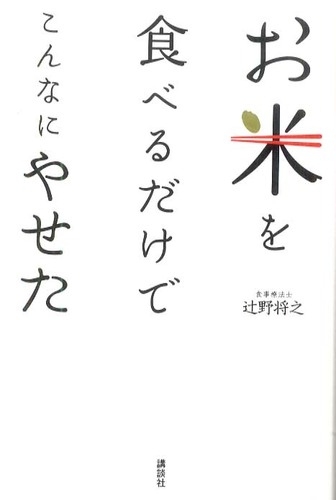 お米を
食べるだけで
こんなにやせた
食事療法士
辻野将之
講談社